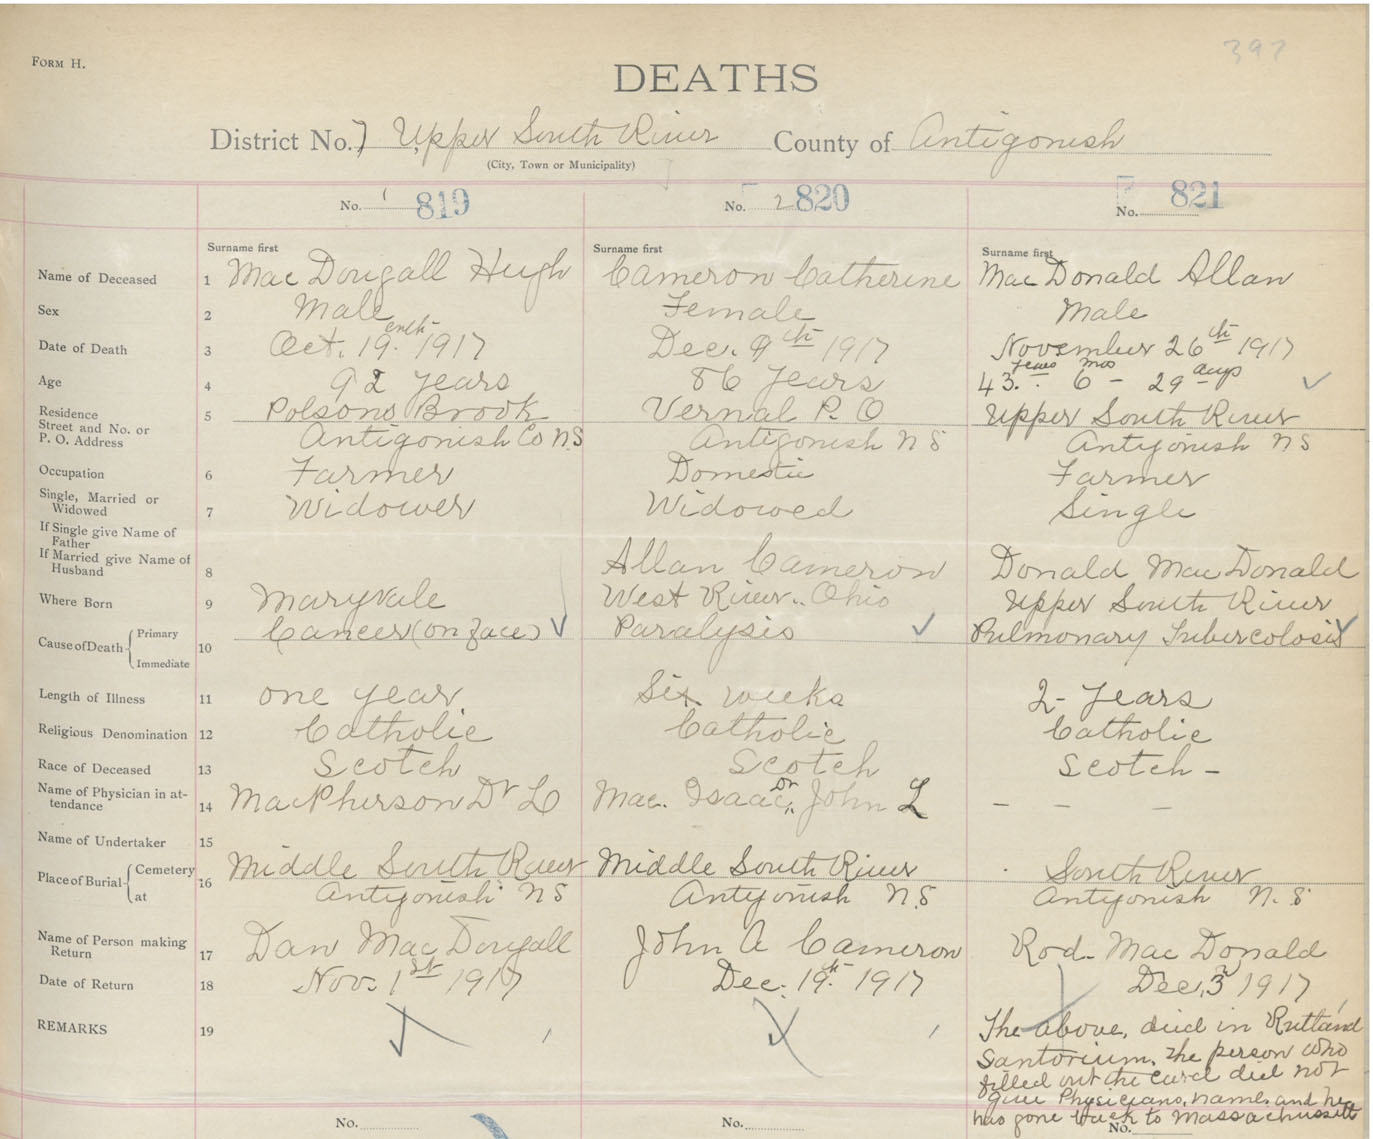 397
FORM H.
DEATHS
District No. 7 Upper South River County of Antigonish
(City, Town or Municipality)
No. 1 819
No. 2 820
No. 821
Surname first
Surname first
Surname first
Name of Deceased 1 MacDougall Hugh Cameron Catherine MacDonald Allan
Sex 2 Male Female Male
Date of Death 3 Oct. 19.enth 1917 Dec. 9th 1917 November 26th 1917
Age 4 92 years 86 years 43. years 6 mos - 29 days
Residence 5 Polsons Brook Vernal P. O Upper South River
Street and No. or
P. O. Address Antigonish Co N.S Antigonish N S Antigonish N S
Occupation 6 Farmer Domestic Farmer
Single, Married or
Widowed 7 Widower Widowed Single
If Single give Name of
Father
If Married give Name of
Husband 8 Allan Cameron Donald MacDonald
Where Born 9 Maryvale West River.. Ohio Upper South River
Cause of Death Primary 10 Cancer (on face) Paralysis Pulmonary Tubercolosis
Immediate
Length of Illness 11 one year Six weeks 2- years
Religious Denomination 12 Catholic Catholic Catholic
Race of Deceased 13 Scotch Scotch Scotch -
Name of Physician in at-
tendance 14 MacPherson Dr Mac. Isaac, Dr John L - - -
Name of Undertaker 15
Place of Burial Cemetery 16 Middle South River Middle South River South River
at Antigonish N S Antigonish N.S Antigonish N. S
Name of Person making
Return 17 Dan MacDougall John A Cameron Rod. MacDonald
Date of Return 18 Nov. 1st 1917 Dec. 19th 1917 Dec, 3 1917
REMARKS 19 The above, died in Rutland
Santorium. The person who
filled out the card did not
give Physicians, name, and he
has gone back to Massachussett
No.
No.
No.